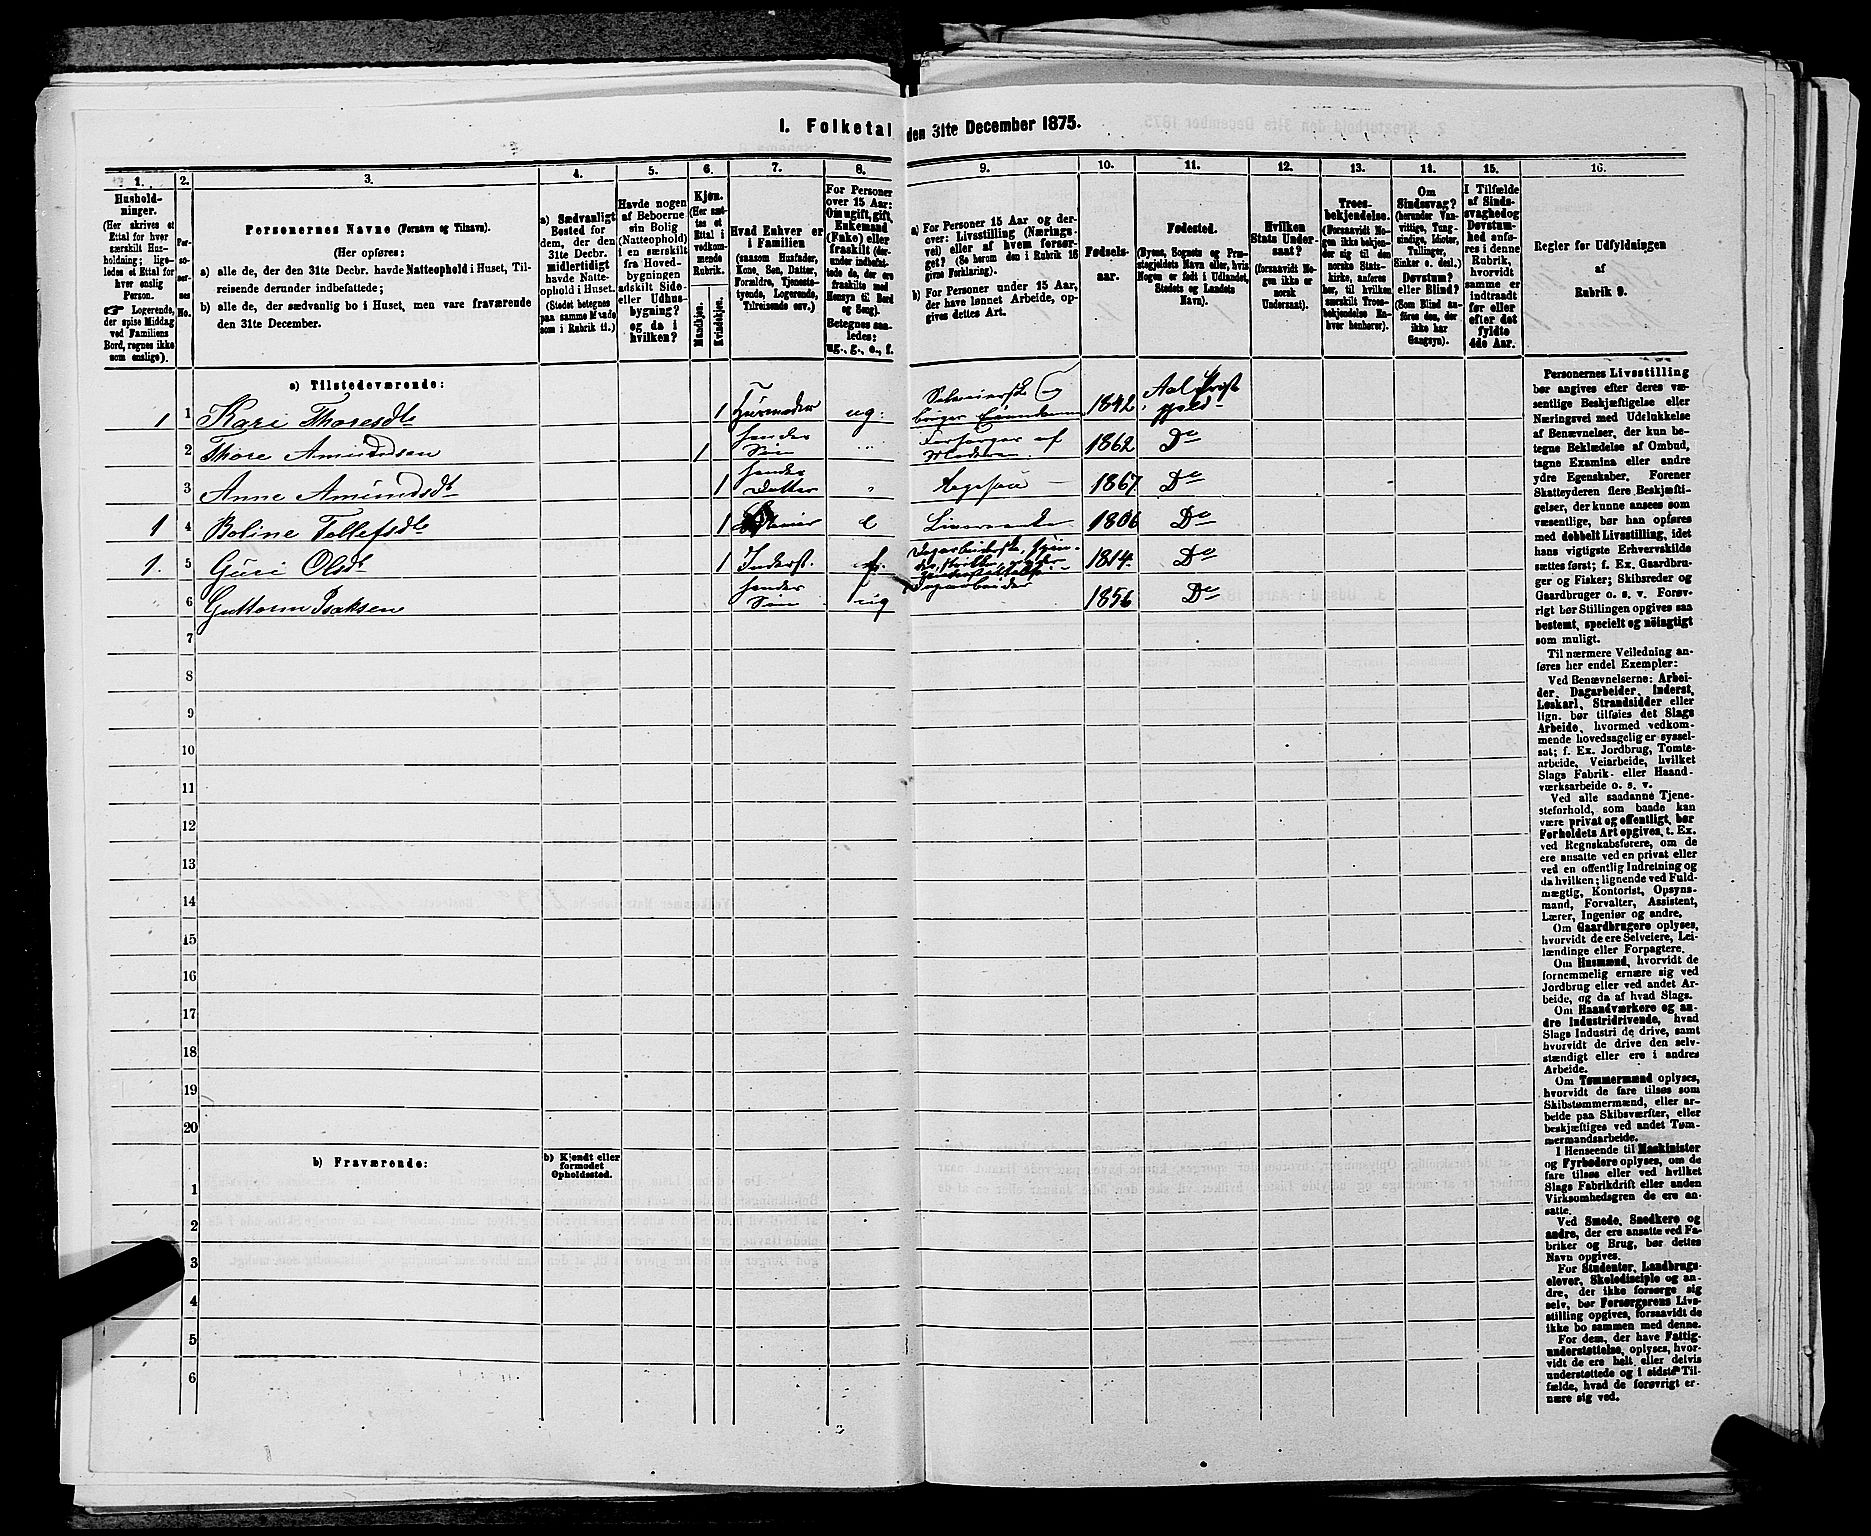 1. Folketal den 31te December 1875.
1.
2.
3.
4.
5.
6.
7.
8.
9.
10.
11.
12.
13.
14.
15.
16.
Hushold-
ninger.
(Her skrives et
Ettal for hver
særskilt Hus-
holdning; lige-
ledes et Ettal for
hver enslig
Person.
☞ Logerende,
der spise Middag
ved Familiens
Bord, regnes ikke
som enslige).
Per-
soner-
nes
No.
Personernes Navne (Fornavn og Tilnavn).
(Her opføres:
a) alle de, der den 31te Decbr. havde Natteophold i Huset, Til-
reisende derunder indbefattede;
b) alle de, der sædvanlig bo i Huset, men vare fraværende
den 31te December.
a) Sædvanligt
Bosted for
dem, der den
31te Decbr.
midlertidigt
havde Natte-
ophold i Huset.
(Stedet betegnes
paa samme Maade
som i Rubrik 11.)
Havde nogen
af Beboerne
sin Bolig
(Natteophold)
i en særskilt
fra Hoved-
bygningen
adskilt Side-
eller Udhus-
bygning?
og da i
hvilken?
Kjøn.
(Her sæt-
tes et
Ettal i
vedkom-
mende
Rubrik.
Mandkjøn.
Kvindekjøn.
Hvad Enhver er
i Familien
(saasom Husfader,
Kone, Søn, Datter,
Forældre, Tjeneste-
tyende, Logerende,
Tilreisende osv.)
For Personer
over 15 Aar:
Om ugift, gift,
Enkemand
(Enke) eller
fraskilt (der-
under indbefat-
tede de, der ere
fraskilte med
Hensyn til Bord
og Seng).
Betegnes saa-
ledes:
ug., g., e., f.
a) For Personer 15 Aar og der-
over: Livsstilling (Nærings-
vei) eller af hvem forsør-
get? (Se herom den i Rubrik 16
givne Forklaring).
b) For Personer under 15 Aar,
der have lønnet Arbeide, op-
gives dettes Art.
Fødsels-
aar.
Fødested.
(Byens, Sognets og Præ-
stegjeldets Navn eller, hvis
Nogen er født i Udlandet,
Stedets og Landets
Navn).
Hvilken
Stats Under-
saat?
(forsaavidt No-
gen ikke er
norsk
Undersaat).
Troes-
bekjendelse.
(Forsaavidt No-
gen ikke bekjen-
der sig til den
norske Stats-
kirke, anføres
her, til hvilken
særskilt Troes-
bekjendelse En-
hver henhører).
Om
Sindssvag?
(herunder Van-
vittige, Tung-
sindige, Idioter,
Tullinger,
Sinker o. desl.)
Døvstum?
eller Blind?
(Som Blind an-
føres den, der
ikke har
Gangsyn).
I Tilfælde
af Sinds-
svaghed og
Døvstum-
hed anfø-
res i denne
Rubrik,
hvorvidt
samme er
indtraadt
før eller
efter det
fyldte
4de Aar.
Regler før Udfyldningen
af
Rubrik 9.
a) Tilstedeværende:
1 1 Kari Thoresdt 1 Husmoder ug. 1842 Aal
2 Thore Amundsen 1 hendes Søn " Forsørges af Moderen 1862 Do
3 Anne Amundsdt 1 hendes Datter " 1867 Do
1 4 Boline Tollefsdt 1 e 1806 Do
1. 5 Guri Olsdt 1 Inderst. 1814. Do
6 Guttorm Isaksen hendes Søn ug Dagarbeider 1856 Do
7
8
9
10
11
12
13
14
15
16
17
18
19
20
b) Fraværende:
b) Kjendt eller
formodet
Opholdssted.
1
2
3
4
5
6
Personernes Livsstilling
bør angives efter deres væ-
sentlige Beskjæftigelse eller
Næringsvei med Udelukkelse
af Benævnelser, der kun be-
tegne Beklædelse af Ombud,
tagne Examina eller andre
ydre Egenskaber. Forener
Skatteyderen flere Beskjæfti-
gelser, der kunne ansees som
væsentlige, bør han opføres
med dobbelt Livsstilling, idet
hans vigtigste Erhvervskilde
sættes først; f. Ex. Gaardbru-
ger og Fisker; Skibsreder og
Gaardbruger o. s. v. Forøv-
rigt bør Stillingen opgives saa
bestemt, specielt og nöiagtigt
som muligt.
Til nærmere Veiledning an-
føres her endel Exempler:
Ved Benævnelserne: Arbei-
der, Dagarbeider, Inderst,
Løskarl, Strandsidder eller
lign. bør tilføies det Slags
Arbeide, hvormed vedkom-
mende hovedsagelig er syssel-
sat; f. Ex. Jordbrug, Tomte-
arbeide, Veiarbeide, hvilket
Slags Fabrik- eller Haand-
værksarbeide o. s. v.
Ved alle saadanne Tjene-
steforhold, som baade kan
være privat og offentligt, bør
Forholdets Art opgives, t. Ex.
ved Regnskabsførere, om de
ere ansatte ved en privat eller
ved en offentlig Indretning og
da hvilken; lignende ved Fuld-
mægtig, Kontorist, Opsyns-
mand, Forvalter, Assistent,
Lærer, Ingeniør og andre.
Om Gaardbrugere oplyses,
hvorvidt de ere Selveiere, Lei-
lændinge eller Forpagtere.
Om Husmænd, hvorvidt de
fornemmelig ernære sig ved
Jordbrug eller ved andet Ar-
beide, og da af hvad Slags.
Om Haandværkere og an-
dre Industridrivende, hvad
Slags Industri de drive, samt
hvorvidt de drive den selv-
stændigt eller ere i andres
Arbeide.
Om Tømmermænd oplyses,
hvorvidt de fare tilsøs som
Skibstømmermænd, eller ar-
beide paa Skibsværfter, eller
beskjæftiges ved andet Tøm-
mermandsarbeide.
I Henseende til Maskinister
og Fyrbødere oplyses, om de
fare tilsøs eller ved hvilket
Slags Fabrikdrift eller anden
Virksomhedsgren de ere an-
satte.
Ved Smede, Snedkere og
andre, der ere ansatte ved Fa-
briker og Brug, bør dettes
Navn opgives.
For Studenter, Landbrugs-
elever, Skoledisciple og an-
dre, der ikke forsørge sig
selv, bør Forsørgerens Livs-
stilling opgives, forsaavidt de
ikke bo sammen med denne.
For dem, der have Fattig-
understøttelse, oplyses, hvor-
vidt de ere helt eller delvis
understøttede og i sidste Til-
fælde, hvad de forøvrigt er-
nære sig ved.